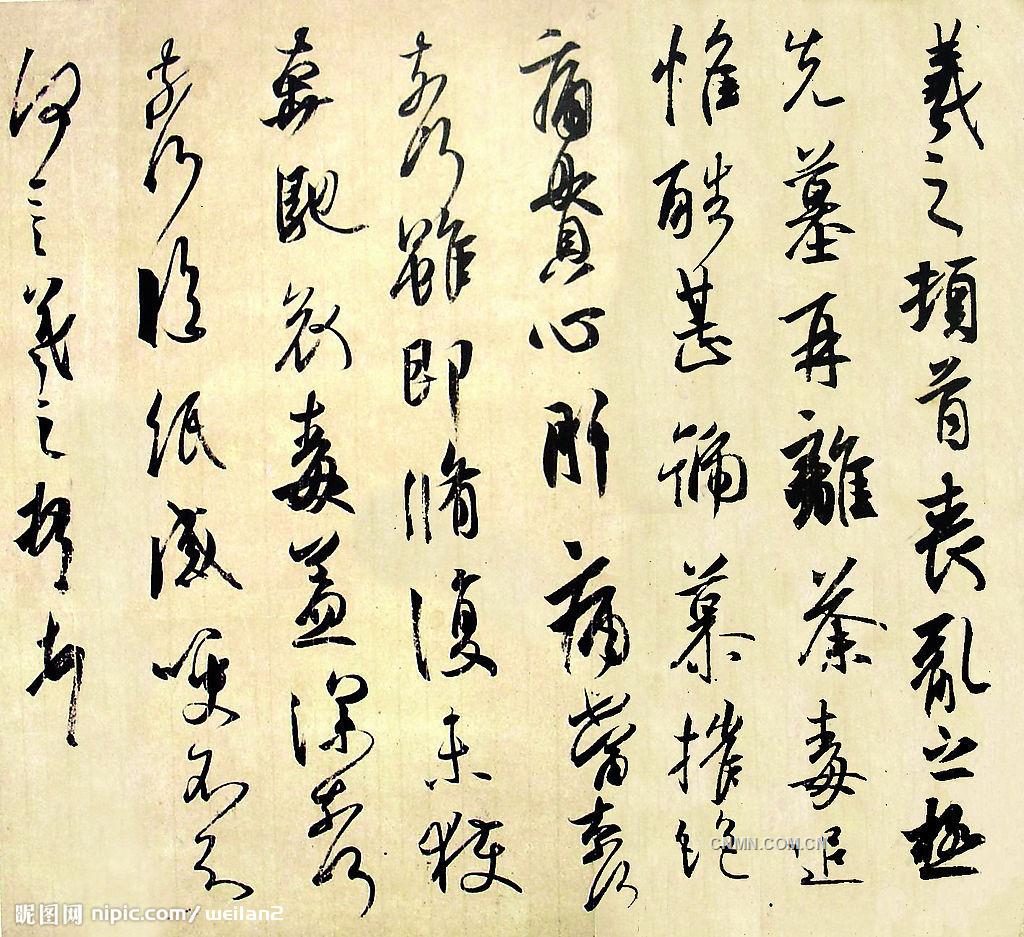 羲之頓首喪亂之極
先墓再離荼毒追
惟酷甚號慕摧絕
痛貫心肝痛當奈何
奈何雖即脩復未獲
奔馳哀毒益深奈何
奈何臨紙感哽不知
何言羲之頓首頓首
CNMN.COM.CN
昵图网 nipic.com/weilan2